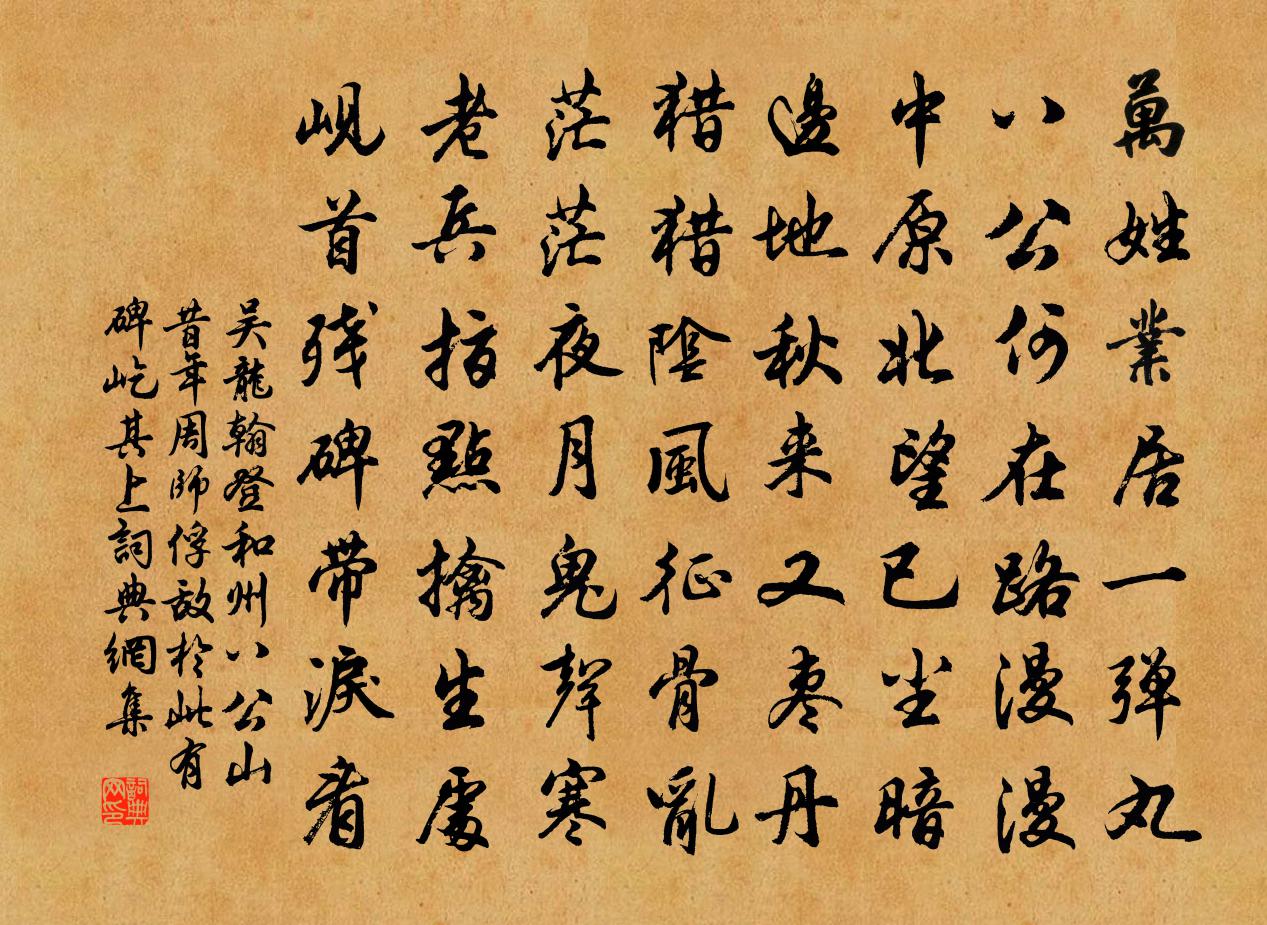 萬姓業居一弹丸
八公何在路漫漫
中原北望已尘暗
邊地秋来又枣丹
猎猎陰風征骨亂
茫茫夜月鬼聲寒
老兵指點擒生處
峴首残碑带淚看
吴龍翰登和州八公山
昔年周師俘敌於此有
碑屹其上詞典網集
詞典
网印